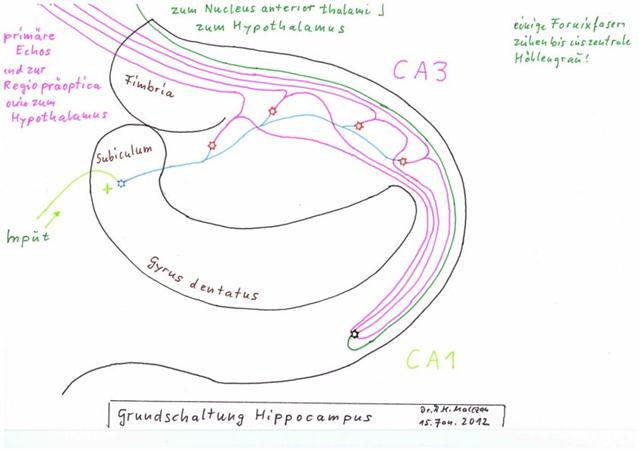 zum Nucleus anterior thalami
zum Hypothalamus
einige Fornixfasern
ziehen bis ins zentrale
Höhlengrau!
primäre
Echos
und zur
Regio präoptica
sowie zum
Hypothalamus
CA3
Fimbria
Subiculum
+
Input
Gyrus dentatus
CA1
Grundschaltung Hippocampus
Malczan
15. Jan. 2012